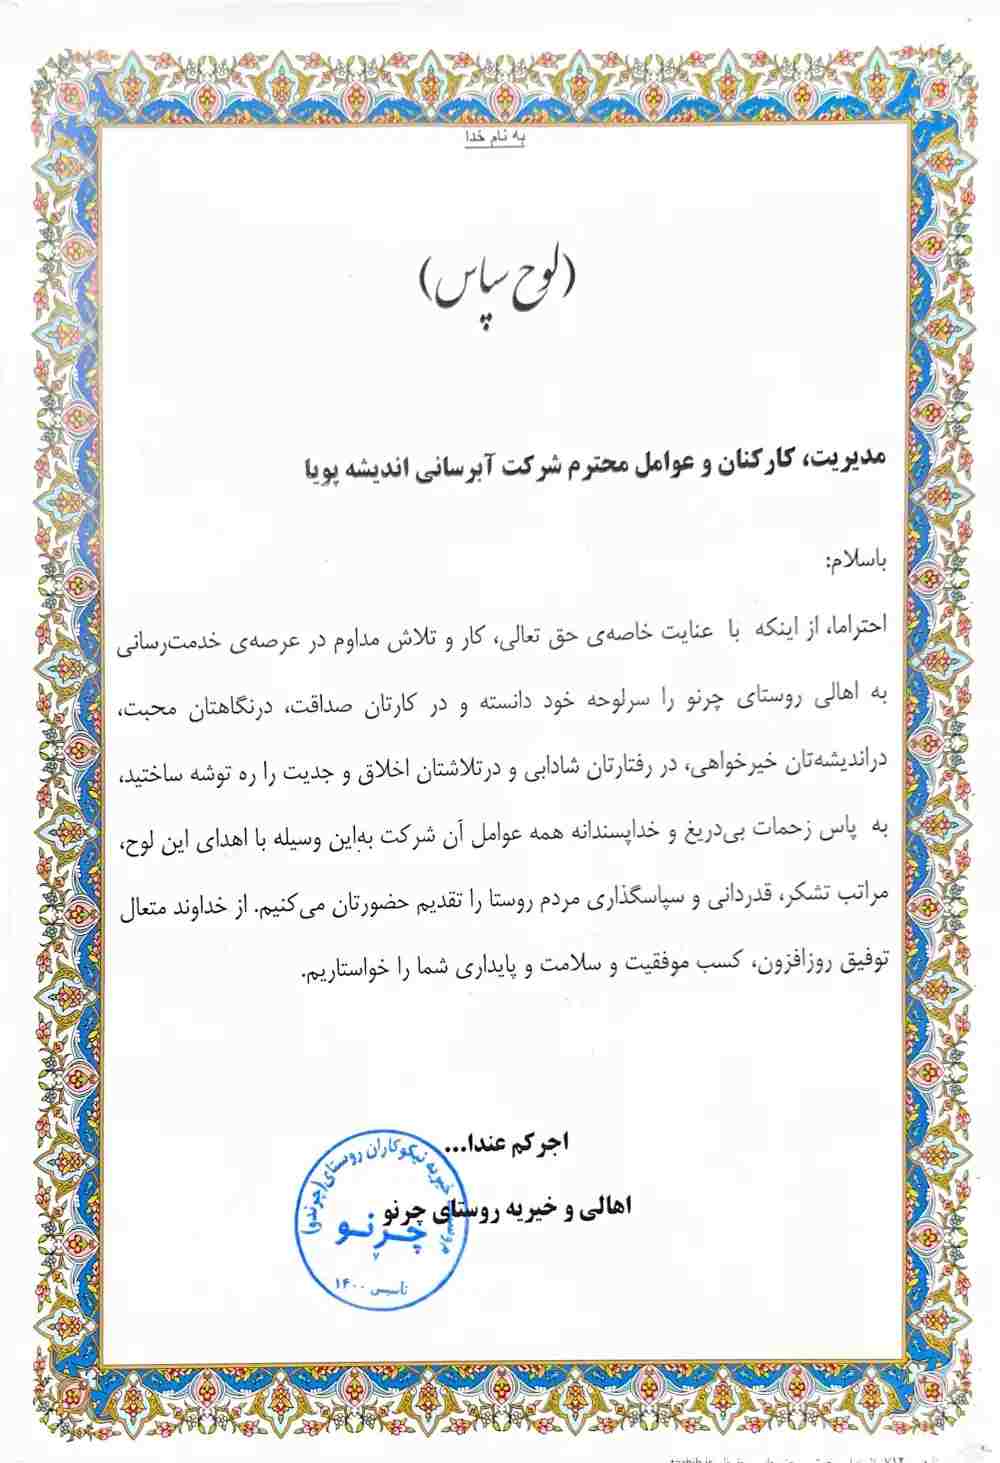 به نام خدا
(لوح سپاس)
مدیریت، کارکنان و عوامل محترم شرکت آبرسانی اندیشه پویا
باسلام:
احتراما، از اینکه با عنایت خاصه‌ی حق تعالی، کار و تلاش مداوم در عرصه‌ی خدمت‌رسانی
به اهالی روستای چرنو را سرلوحه خود دانسته و در کارتان صداقت، درنگاهتان محبت،
دراندیشه‌تان خیرخواهی، در رفتارتان شادابی و درتلاشتان اخلاق و جدیت را ره توشه ساختید،
به پاس زحمات بی‌دریغ و خداپسندانه همه عوامل آن شرکت به‌این وسیله با اهدای این لوح،
مراتب تشکر، قدردانی و سپاسگذاری مردم روستا را تقدیم حضورتان می‌کنیم. از خداوند متعال
توفیق روزافزون، کسب موفقیت و سلامت و پایداری شما را خواستاریم.
اجرکم عندا...
اهالی و خیریه روستای چرنو
خیریه نیکوکاران روستای (چرندو)
چرنو
تاسیس ۱۴۰۰